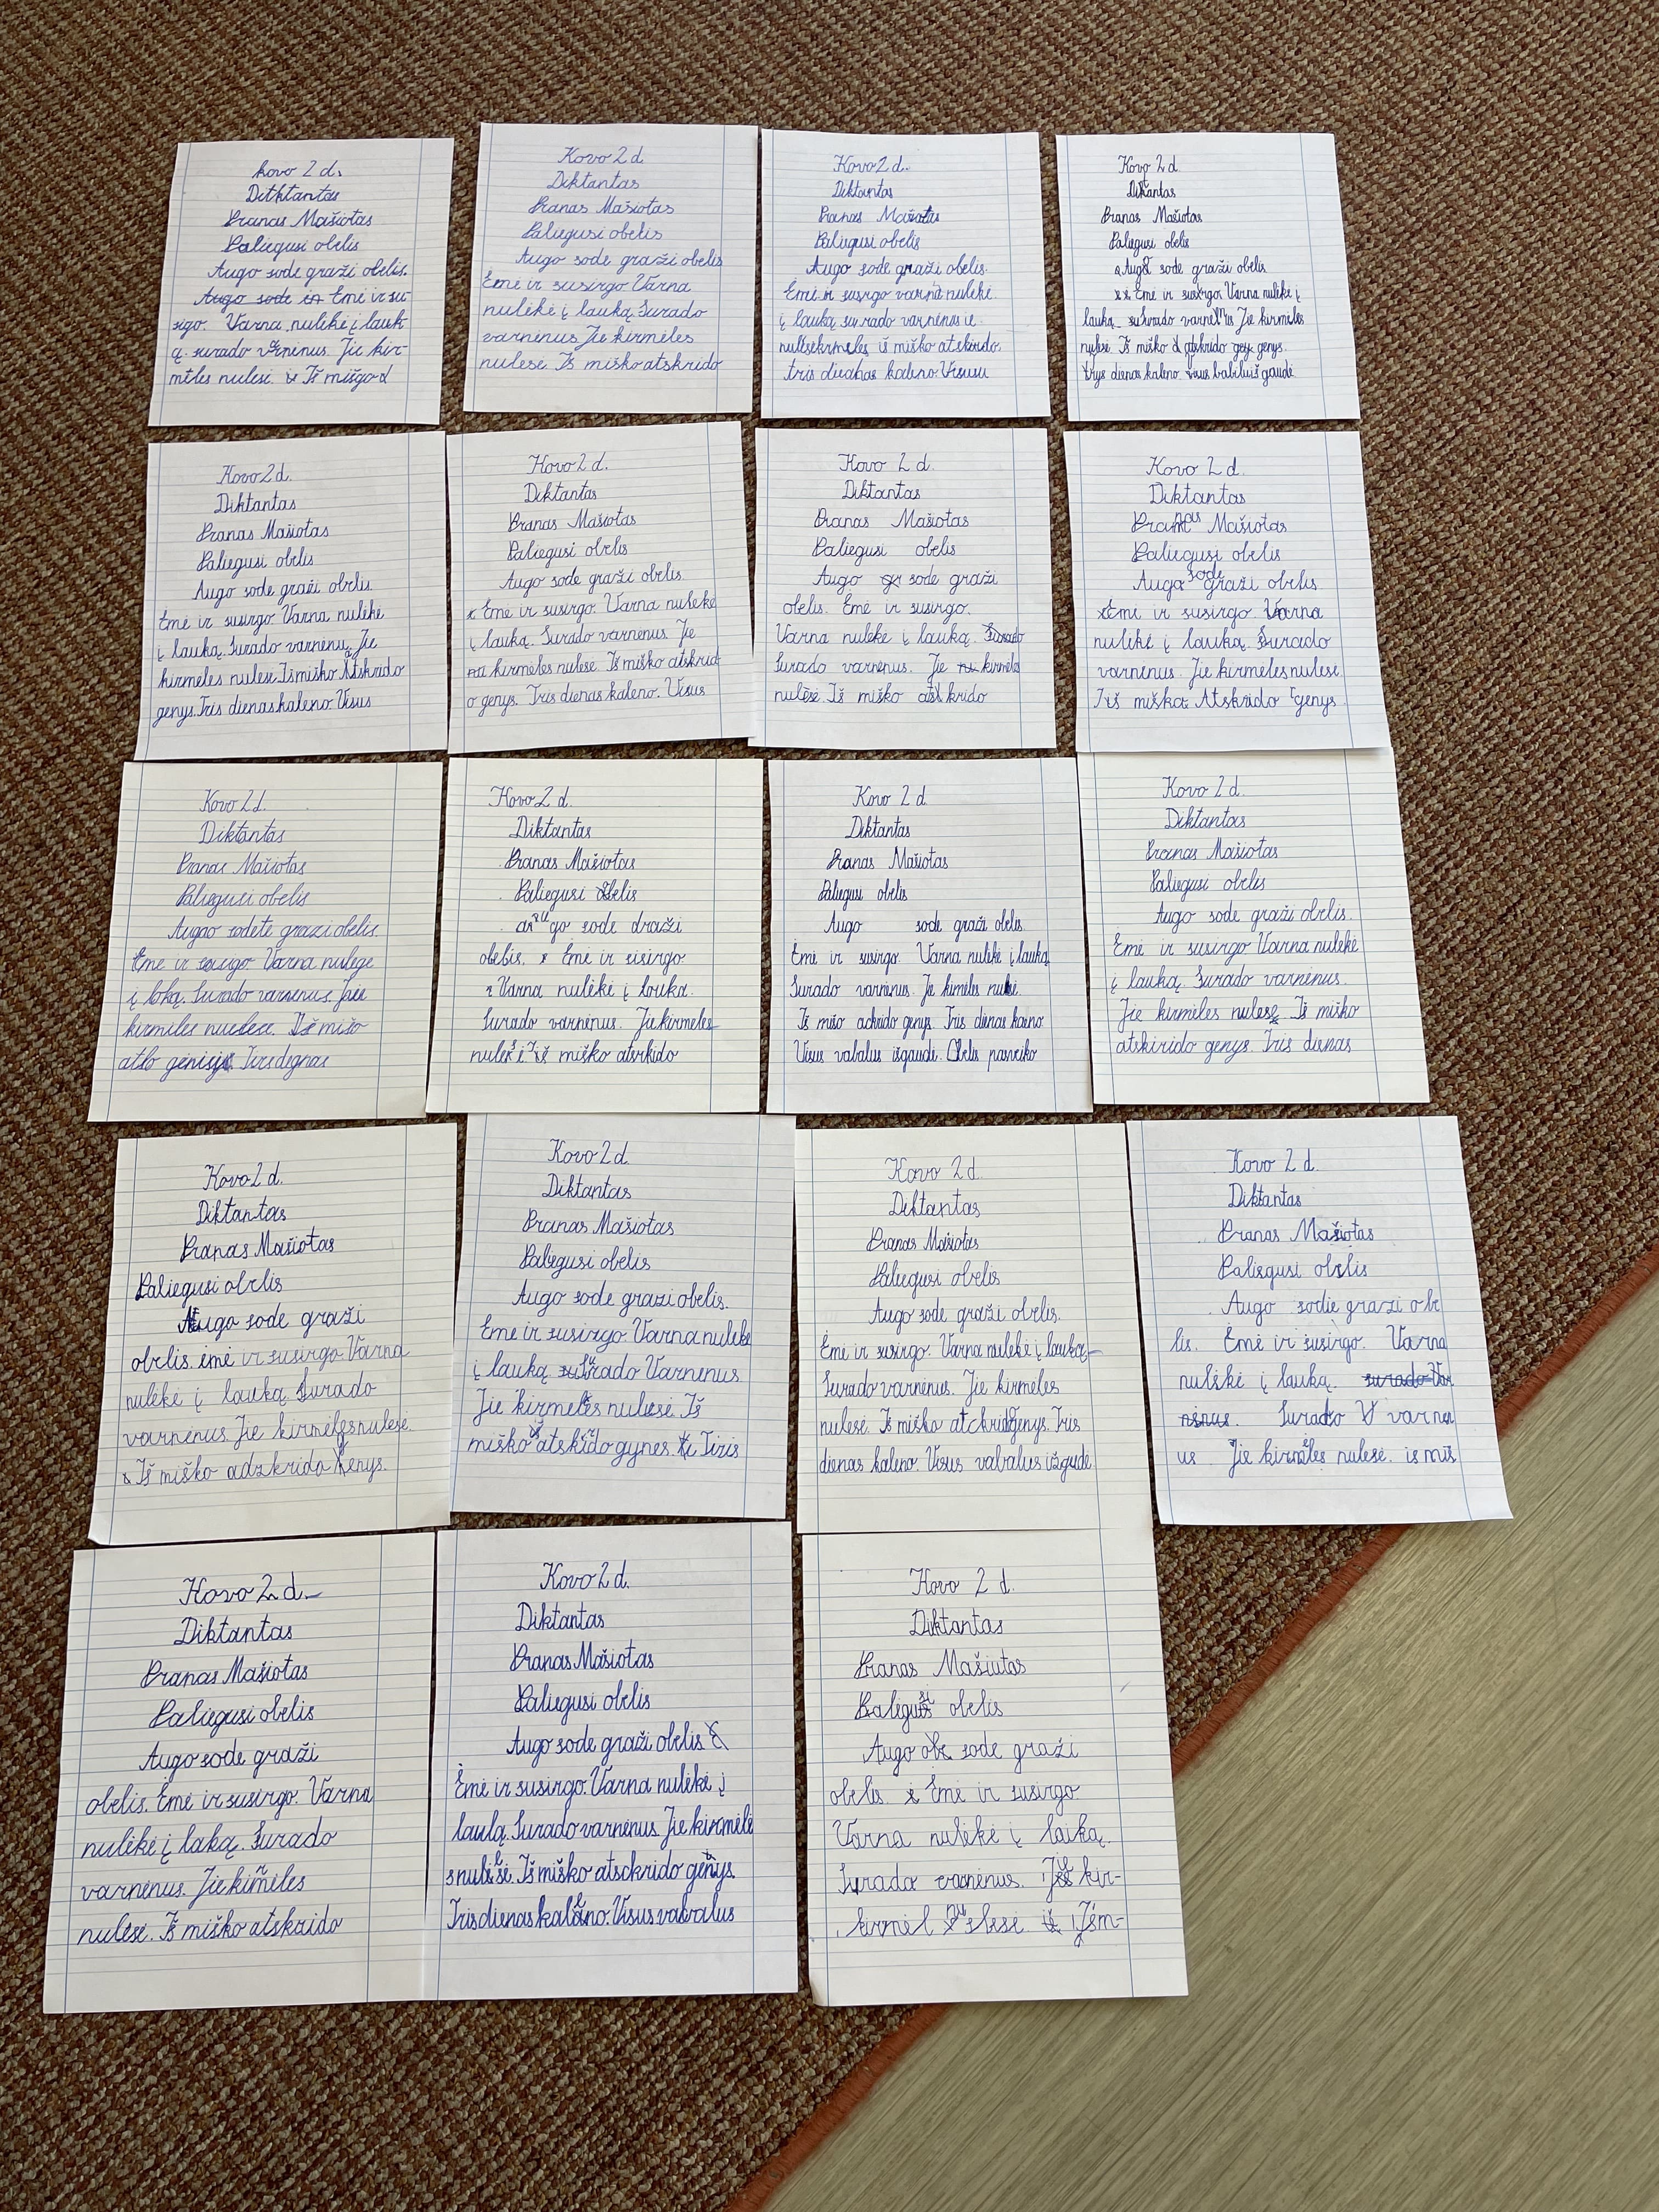 kovo 2 d.
Ditktantas
Pranas Mašiotas
Paliegusi obelis
Augo sode graži obelis.
Augo sode Ėmė ir su-
sigo. Varna nulėkė į lauk
ą. surado varnėnus. Jie kir-
mėles nulesė. Iš mišgo
Kovo 2 d
Diktantas
Pranas Mašiotas
Paliegusi obelis
Augo sode graži obelis
Ėmė ir susirgo Varna
nulėkė į lauką Surado
varnėnus Jie kirmėles
nulesė. Iš miško atskrido
Kovo 2 d.
Diktantas
Pranas Mašiotas
Paliegusi obelis
Augo sode graži obelis.
Ėmė ir susirgo varna nulėkė.
į lauką surado varnėnus ie
nulesekrmeles iš miško atskrido.
tris dienas kaleno. Visusu
Kovo 2 d.
Diktantas
Pranas Mašiotas
Paliegusi obelis
Augo sode graži obelis
Ėmė ir susirgo. Varna nulėkė į
lauką surado Jie kirmėles
nulesė. Iš miško atskrido genys.
trys dienas kaleno. visus gaudė
Kovo 2 d.
Diktantas
Pranas Mašiotas
Paliegusi obelis
Augo sode graži obelis.
Ėmė ir susirgo. Varna nulėkė
į lauką. Surado varnėnų. Jie
kirmėles nulesė. Iš miško Atskrido
genys. Tris dienas kaleno. Visus
Kovo 2 d.
Diktantas
Pranas Mašiotas
Paliegusi obelis
Augo sode graži obelis.
Ėmė ir susirgo. Varna nulėkė
į lauką. Surado varnėnus. Jie
kirmėles nulesė. Iš miško atskrid
o genys. Tris dienas kaleno. Visus
Kovo 2 d.
Diktantas
Pranas Mašiotas
Paliegusi obelis
Augo sode graži
obelis. Ėmė ir susirgo.
Varna nulėkė į lauką. Surado
Surado varnėnus. Jie kirmėls
nulėsė. Iš miško atskrido
Kovo 2 d.
Diktantas
Pranas Mašiotas
Paliegusi obelis
Augo sode graži obelis
Ėmė ir susirgo. Varna
nulėkė į lauką. Surado
varnėnus. Jie kirmėles nulesė.
Iš miška. Atskrido genys.
Kovo 2 d.
Diktantas
Pranas Mašiotas
Paliegusi obelis
Augno sodete grazi obelis.
Ėmė ir Varna nulege
į loką. Surado varnėnus. Jiee
kirmiles Iš mišo
atlo Tirs dignas
Kovo 2 d.
Diktantas
Pranas Mašiotas
Paliegusi obelis
go sode draži
obelis, Ėmė ir sisirgo
Varna nulėkė į louka.
Surado varnėnus. Jie kirmeles
miško atsrkido
Kovo 2 d.
Diktantas
Pranas Mašiotas
Paliegusi obelis
Augo sode graži obelis.
Ėmė ir susirgo. Varna nulėkė į lauką
Surado varnėnus. Je kimėles
Iš mišo ackrido genys. Tris dienas kaino.
Visus vabalus išgaudė. Obelis pasveiko
Kovo 2 d.
Diktantas
Pranas Mašiotas
Paliegusi obelis
Augo sode graži obelis.
Ėmė ir susirgo. Varna nulėkė
į lauką. Surado varnėnus.
Jie kirmėles nulesė. Iš miško
atskirido genys. Tris dienas
Kovo 2 d.
Diktantas
Pranas Mašiotas
Paliegusi obelis
Augo sode graži
obelis. ėmė ir susirgo. Varna
nulėkė į lauką. Surado
varnėnus. Jie kirmėles nulesė.
Iš miško adzkrido genys.
Kovo 2 d.
Diktantas
Pranas Mašiotas
Paliegusi obelis
Augo sode grazi obelis.
Ėmė ir susirgo. Varna nulėkė
į lauką surado Varnėnus
Jie kirmelės nulesė. Iš
miško atskido gynes. Tiris
Kovo 2 d.
Diktantas
Pranas Mašiotas
Paliegusi obelis
Augo sode graži obelis.
Ėmė ir susirgo. Varna nulėkė į lauką
Surado varnėnus. Jie kirmėles
nulesė. Iš miško atckrido genys. Tris
dienas kaleno. Visus vabalus ižgudė.
Kovo 2 d.
Diktantas
Pranas Mašiotas
Paliegusi obelis
Augo sodie grazi obe
lis. Ėmė ir susirgo. Varna
nulėkė į lauką. surado Var
nėnus. Surado varnen
us Jie kirmėles nulesė. is miš
Kovo 2 d.
Diktantas
Pranas Mašiotas
Paliegusi obelis
Augo sode graži
obelis. Ėmė ir susirgo. Varna
nulėkė į laką. Surado
varnėnus. Jie kirmėles
nulesė. Iš miško atskrido
Kovo 2 d.
Diktantas
Pranas Mašiotas
Paliegusi obelis
Augo sode graži obelis
Ėmė ir susirgo. Varna nulėkė į
laulą. Surado varnėnus Jie kirmėlė
s nulesė. Iš miško atsckrido genys.
Tris dienas kaleno. Visus vabalus
Kovo 2 d.
Diktantas
Pranas Mašiutas
Paliegusi obelis
Augo obe sode graži
obelis Ėmė ir susirgo
Varna nulėkė į laiką.
Surado varnėnus. Jie kir-
kirmėl nulesė iš